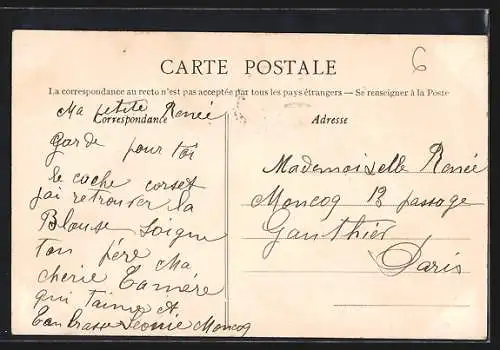 6
CARTE POSTALE
La correspondance au recto n'est pas acceptée par tous les pays étrangers — Se renseigner à la Poste
Correspondance
Ma petite Renée
Garde pour toi
le cache corset
jai retrouver la
Blouse Soigne
ton père Ma
cherie Ta mére
qui t'aime et
t'en brasse Leonie Moncoq
Adresse
Mademoiselle Renée
Moncoq 13 passage
Gauthier
Paris